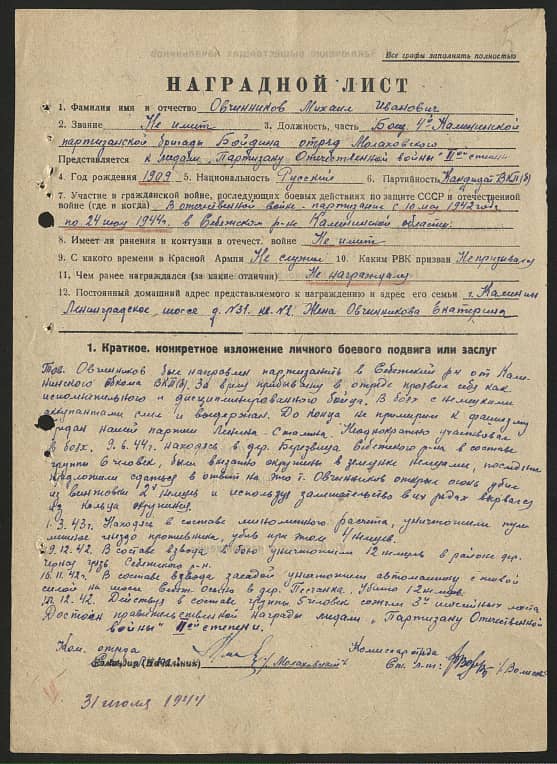 Все графы заполнять полностью
НАГРАДНОЙ ЛИСТ
1. Фамилия имя и отчество Овчинников Михаил Иванович
2. Звание Не имеет 3. Должность, часть Боец 4й Калининской
партизанской бригады Бойдина отряд Молоховского
Представляется к медали "Партизану Отечественной войны" IIой степени
4. Год рождения 1909 5. Национальность Русский 6. Партийность Кандидат ВКП(б)
7. Участие в гражданской войне, последующих боевых действиях по защите СССР и отечественной
войне (где и когда) В отечественной войне - партизание с 10 мая 1942 года
по 24 июля 1944г. в Себежском р-не Калининской области.
8. Имеет ли ранения и контузии в отечест. войне Не имеет
9. С какого времени в Красной Армии Не служил 10. Каким РВК призван Не призывался
11. Чем ранее награждался (за какие отличия) Не награждался
12. Постоянный домашний адрес представляемого к награждению и адрес его семьи г. Калинин
Ленинградское шоссе д. №31. кв. №2. Жена Овчинникова Екатерина
1. Краткое, конкретное изложение личного боевого подвига или заслуг
Тов. Овчинников был направлен партизанить в Себежский р-н от Кали-
нинского обкома ВКП(б). За время пребывания в отряде проявил себя как
исполнительного и дисциплинированного бойца. В боях с немецкими
оккупантами смел и выдержан. До конца не примирим к фашизму
предан нашей партии Ленина-Сталина. Неоднократно участвовал
в боях. 9.6.44г. находясь в дер. Себежского р-на в составе
группы 6 человек, были внезапно окружены в немцами, последние
предложили сдаться в ответ на это т. Овчинников открыл огонь убив
из винтовки 2 немцев и используя замешательство в их рядах вырвался
из кольца окружения.
1.3.43г. Находясь в составе минометного расчета, уничтожили пуле-
метное гнездо противника, убив при этом 4 немцев.
9.12.42. В составе взвода в бою уничтожили 12 немцев в районе дер.
Черная грязь Себежского р-н.
16.11.42г. В составе взвода засадой уничтожили автомашину с живой
силой на шоссе в дер. Песчанка. Убито 12 немцев.
12.42. Действуя в составе группы 5 человек сожгли 3 моста
Достоин правительственной награды медали "Партизану Отечественной
войны" IIой степени.
Ком. отряда Комиссар отряда
Командир (Начальник) /Молоховский/ Ст. л-т:
31 июля 1944